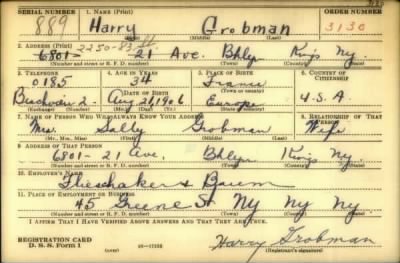 SERIAL NUMBER 1. NAME (Print) ORDER NUMBER
889 Harry Grobman 3130
(First) (Middle) (Last)
2. ADDRESS (Print) 2250-83 St.
6801- 21 Ave. Bklyn Kings Ny.
(Number and street or R. F. D. number) (Town) (County) (State)
3. TELEPHONE 4. AGE IN YEARS 5. PLACE OF BIRTH 6. COUNTRY OF CITIZENSHIP
0185 34
DATE OF BIRTH (Town or county)
2. Aug 21, 1906 Europe U.S.A
(Exchange) (Number) (Mo.) (Day) (Yr.) (State or country)
7. NAME OF PERSON WHO WILL ALWAYS KNOW YOUR ADDRESS 8. RELATIONSHIP OF THAT PERSON
Mrs. Sally Grobman Wife
(Mr., Mrs., Miss) (First) (Middle) (Last)
9. ADDRESS OF THAT PERSON
6801- 21 Ave. Bklyn Kings Ny.
(Number and street or R. F. D. number) (Town) (County) (State)
10. EMPLOYER'S NAME
Baum
11. PLACE OF EMPLOYMENT OR BUSINESS
45 Greene St Ny Ny Ny
(Number and street or R. F. D. number) (Town) (County) (State)
I AFFIRM THAT I HAVE VERIFIED ABOVE ANSWERS AND THAT THEY ARE TRUE.
REGISTRATION CARD
D. S. S. Form 1 Harry Grobman
(Registrant's signature)